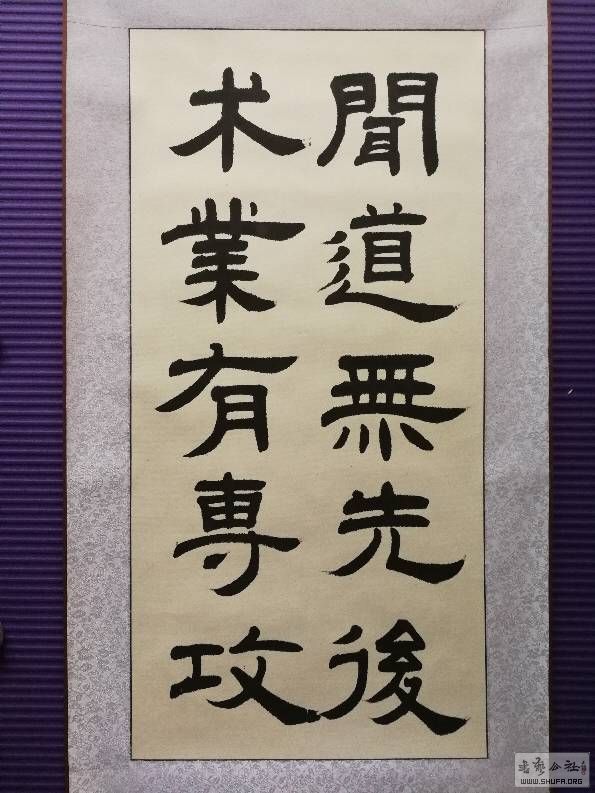 聞道無先後
术業有專攻
书法公社
WWW.SHUFA.ORG